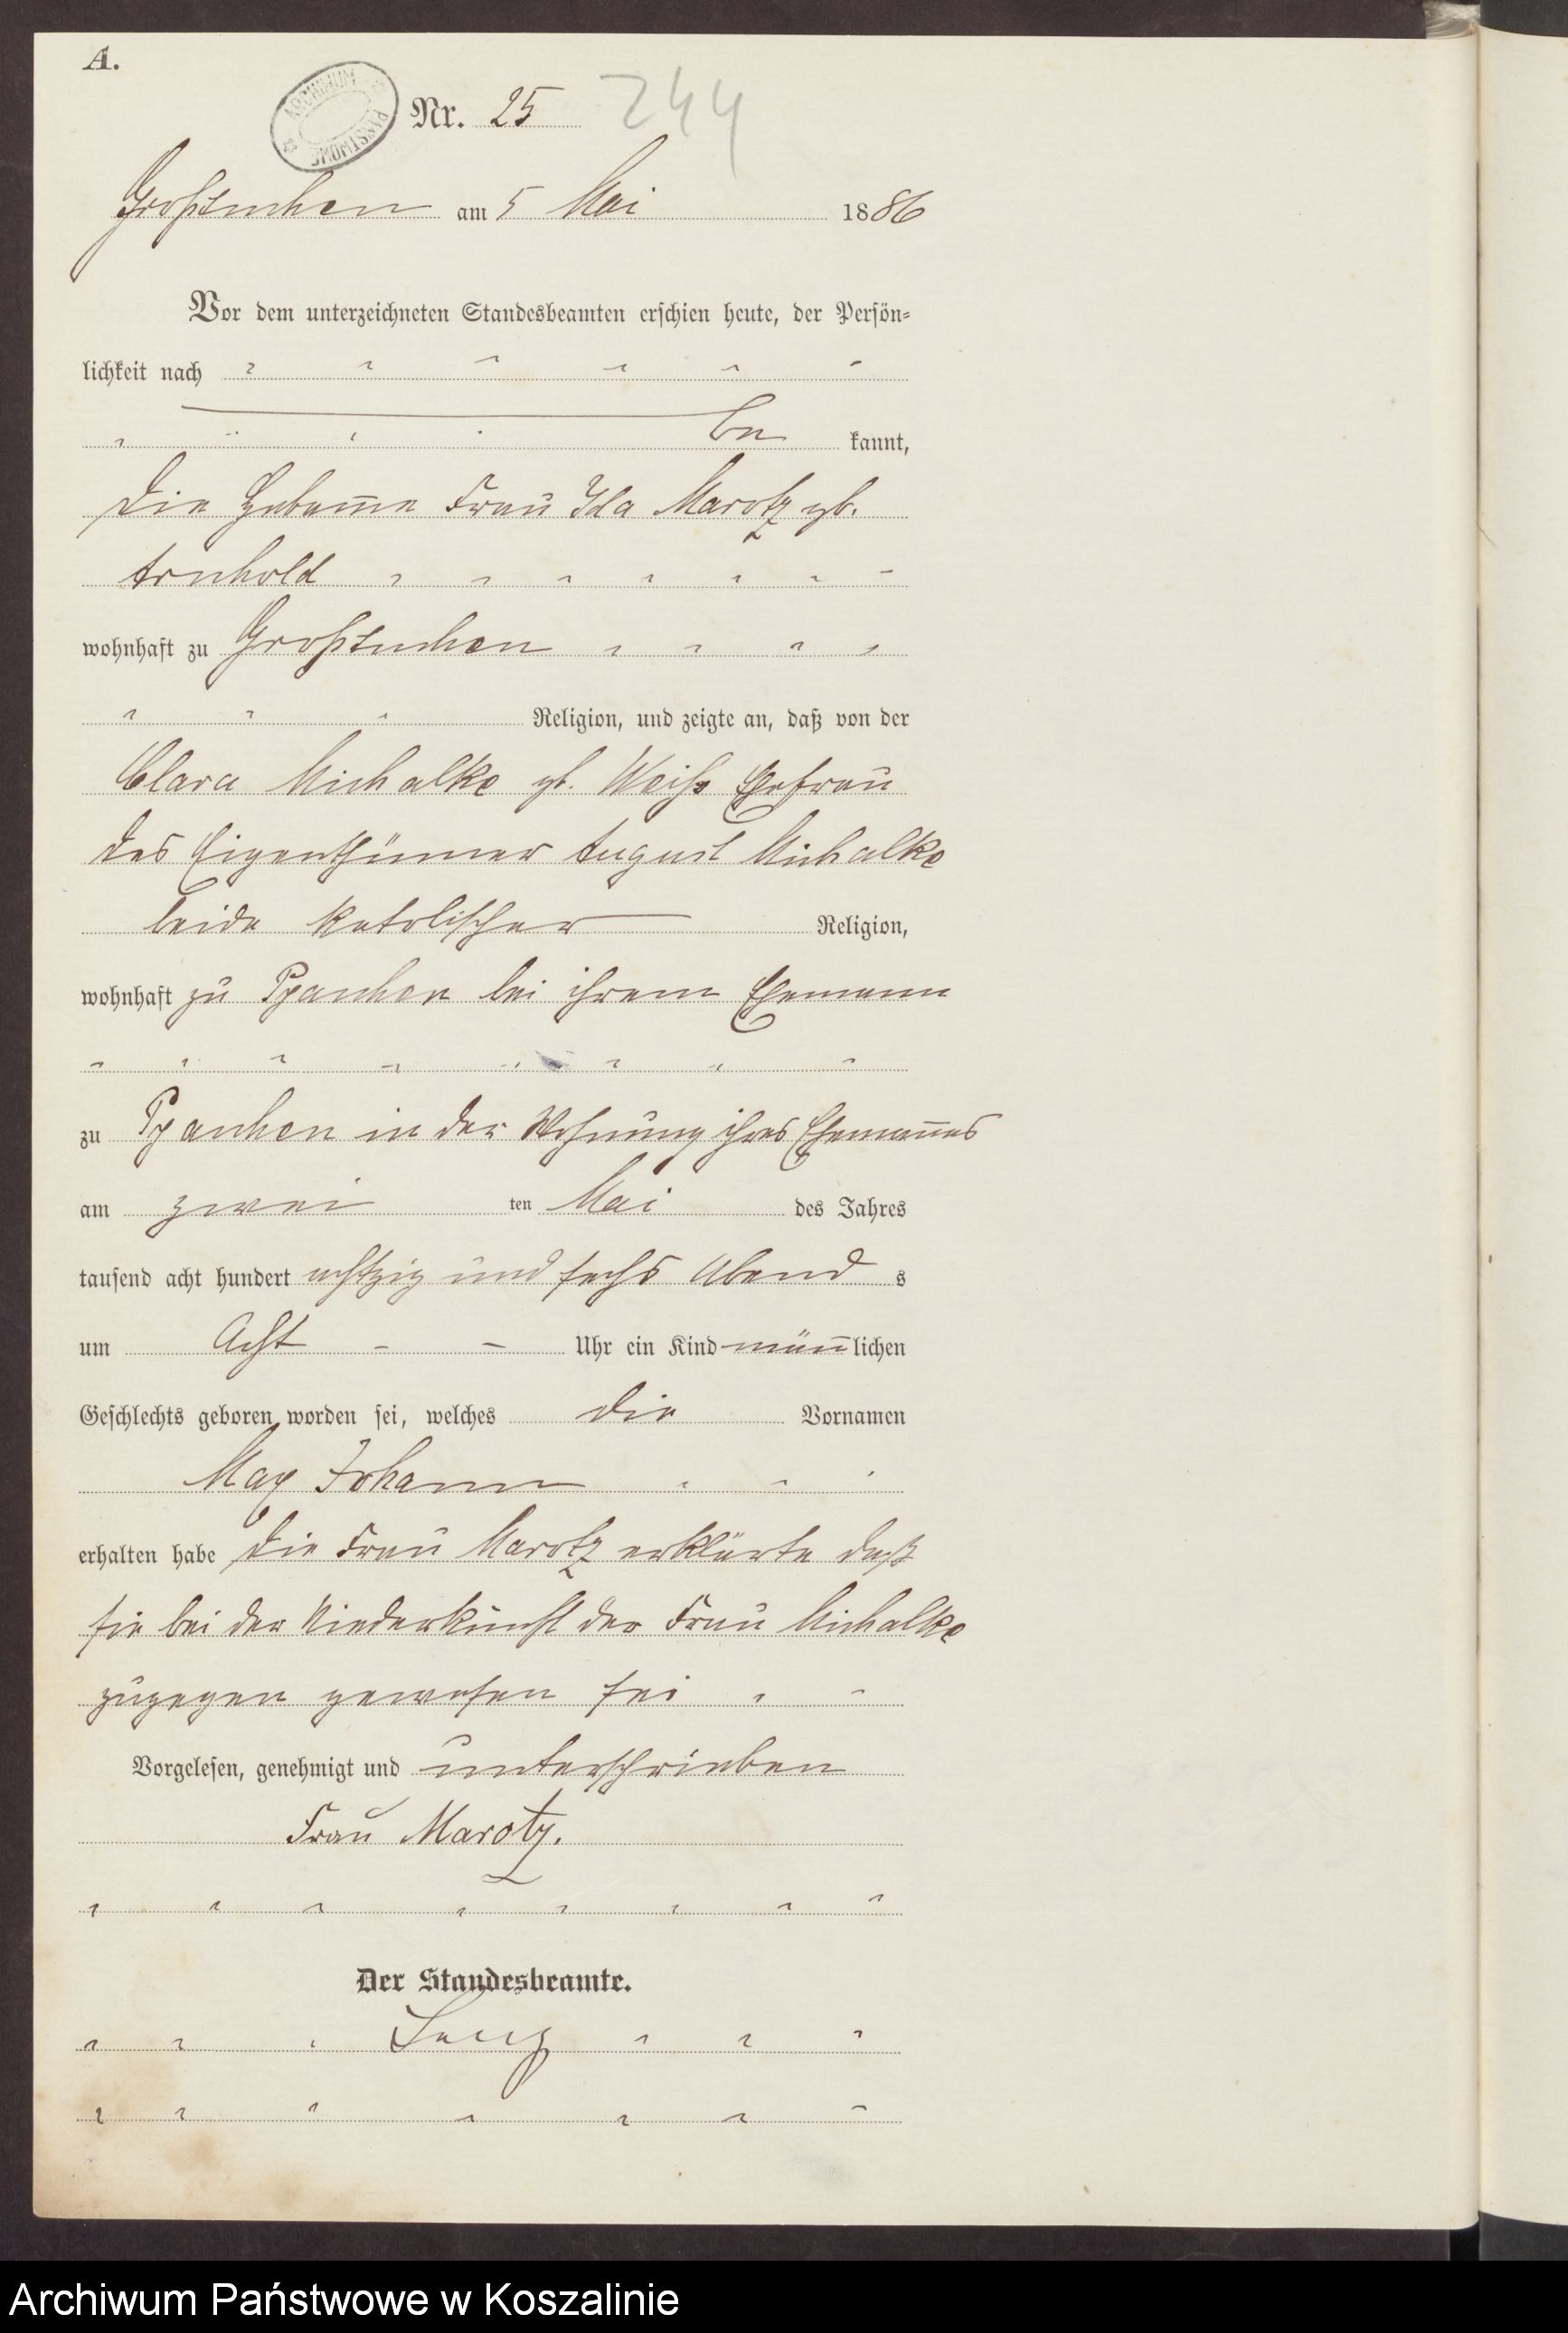 A.
ARCHIWUM PAŃSTWOWE
Nr. 25 244
Großtuchen am 5 Mai 1886
Vor dem unterzeichneten Standesbeamten erschien heute, der Persön-
lichkeit nach
be kannt,
die Hebam̄e Frau Ida Marotz geb.
Arnhold
wohnhaft zu Großtuchen
Religion, und zeigte an, daß von der
Clara Michalke geb. Weiß Ehefrau
des Eigenthümer August Michalke
beide katolischer Religion,
wohnhaft zu bei ihrem Ehemann
zu in der Wohnung ihres Eheman̄es
am zwei ten Mai des Jahres
tausend acht hundert achtzig und sechs Abend s
um Acht Uhr ein Kind män̄lichen
Geschlechts geboren worden sei, welches die Vornamen
Max Johann
erhalten habe die Frau Marotz erklärte daß
sie bei der Niederkunft der Frau Michalke
zugegen gewesen sei
Vorgelesen, genehmigt und unterschrieben
Frau Marotz.
Der Standesbeamte.
Archiwum Państwowe w Koszalinie